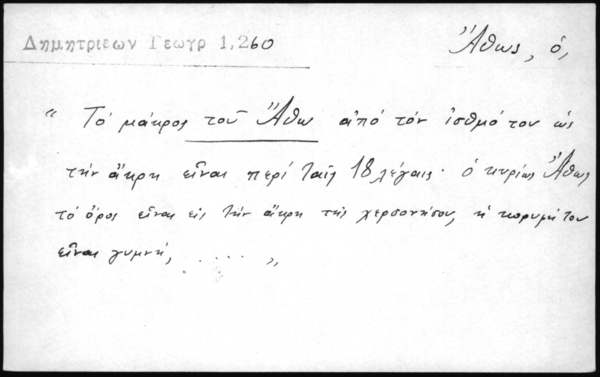 Δημητριεων Γεωγρ 1,260
Ἄθως, ὁ,
“ Τό μάκρος τοῦ Ἄθω ἀπό τόν ἰσθμό του ὡς
τήν ἄκρη εἶναι περί ταῖς 18 λέγαις· ὁ κυρίως Ἄθως
τό ὄρος εἶναι εἰς τήν ἄκρη τῆς χερσονήσου, ἡ κορυφή του
εἶναι γυμνή, ..... „